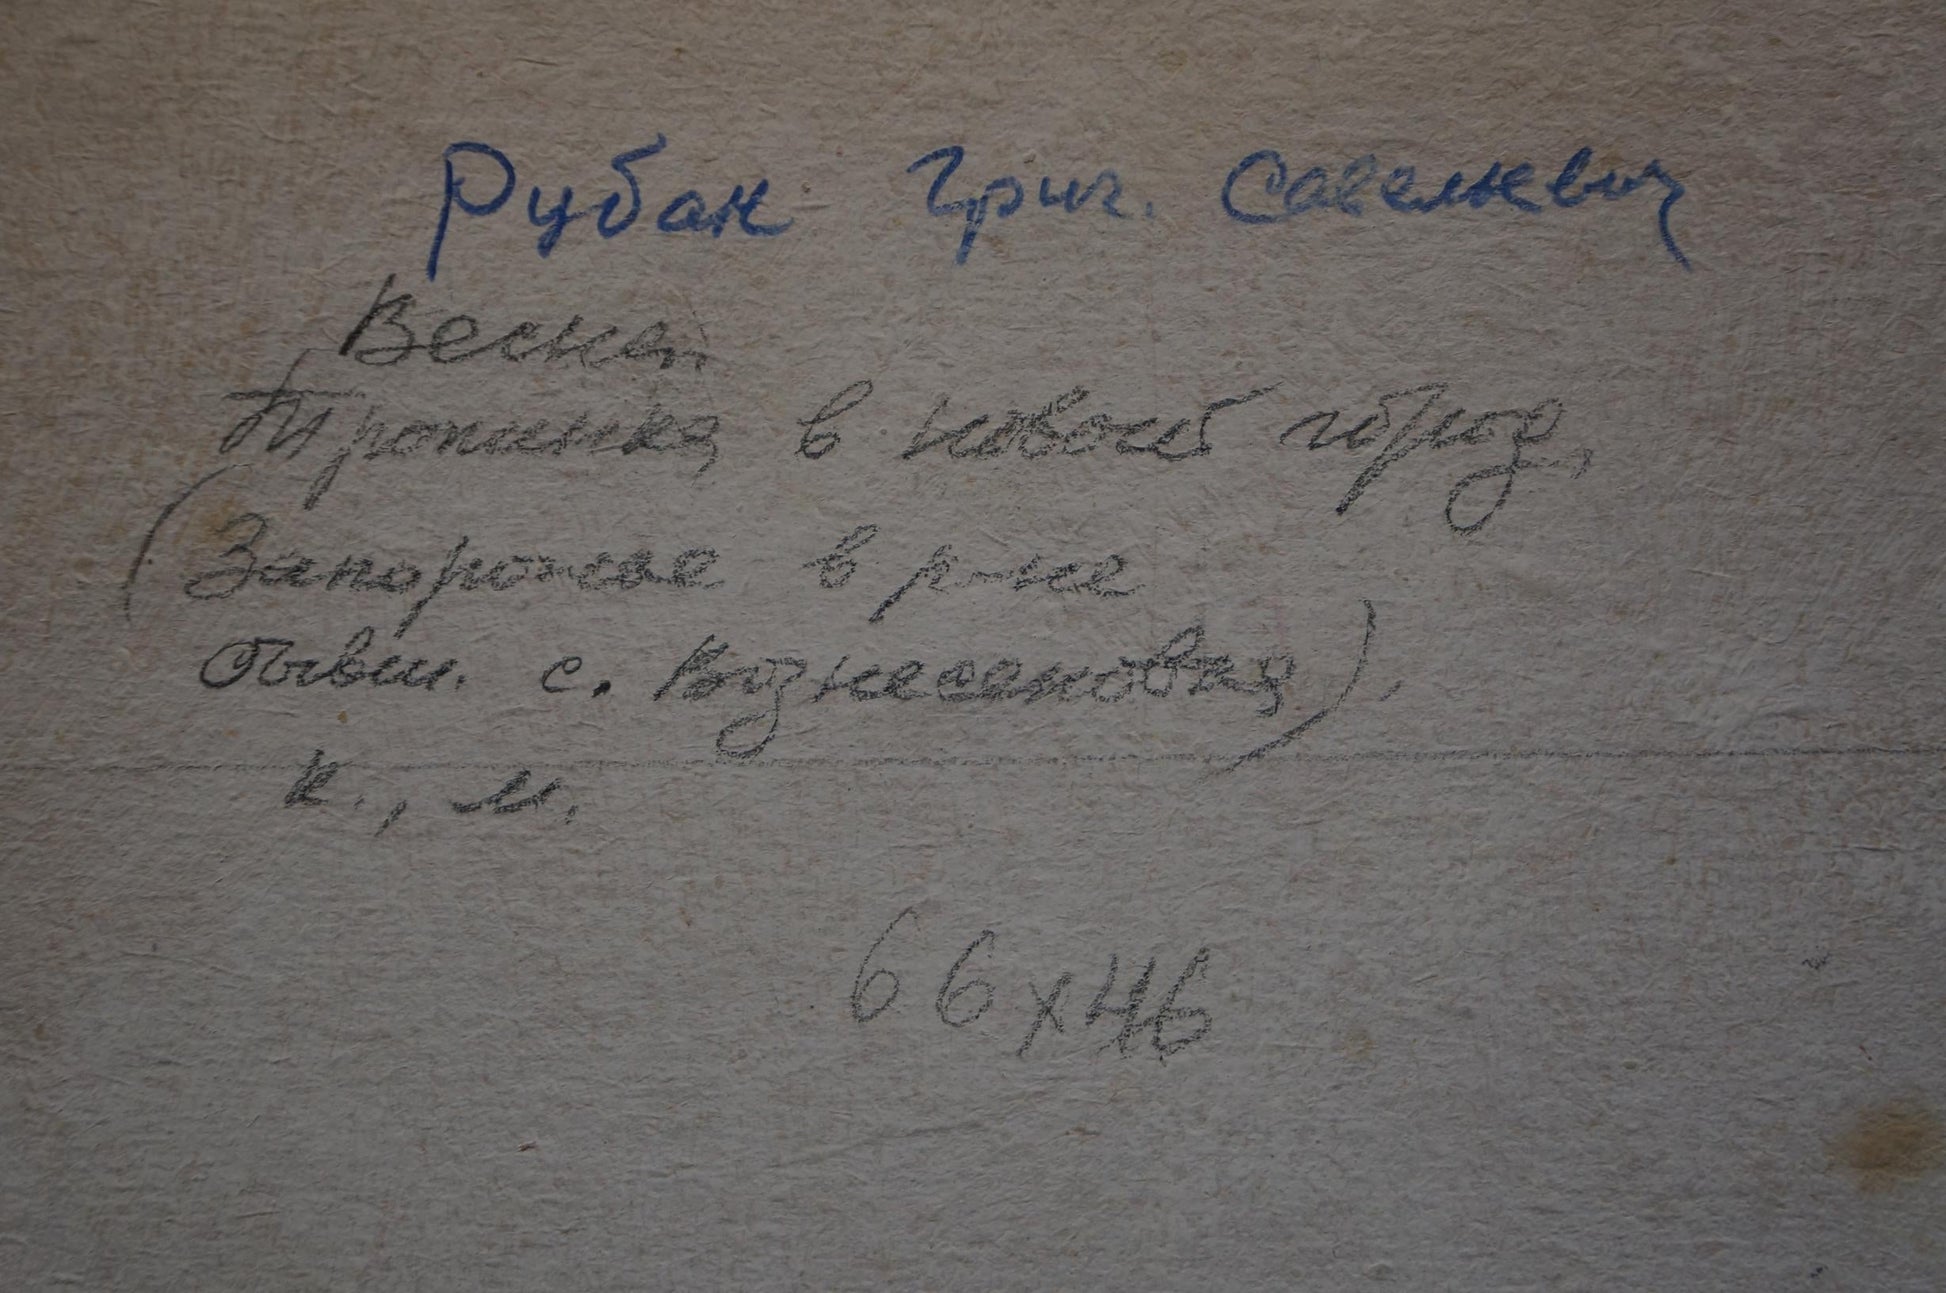 Рубан Григ. Савельевич
Весна.
Тропинка в новый город.
(Запорожье в р-не
бывш. с. Вознесеновка).
к., м.
66х46